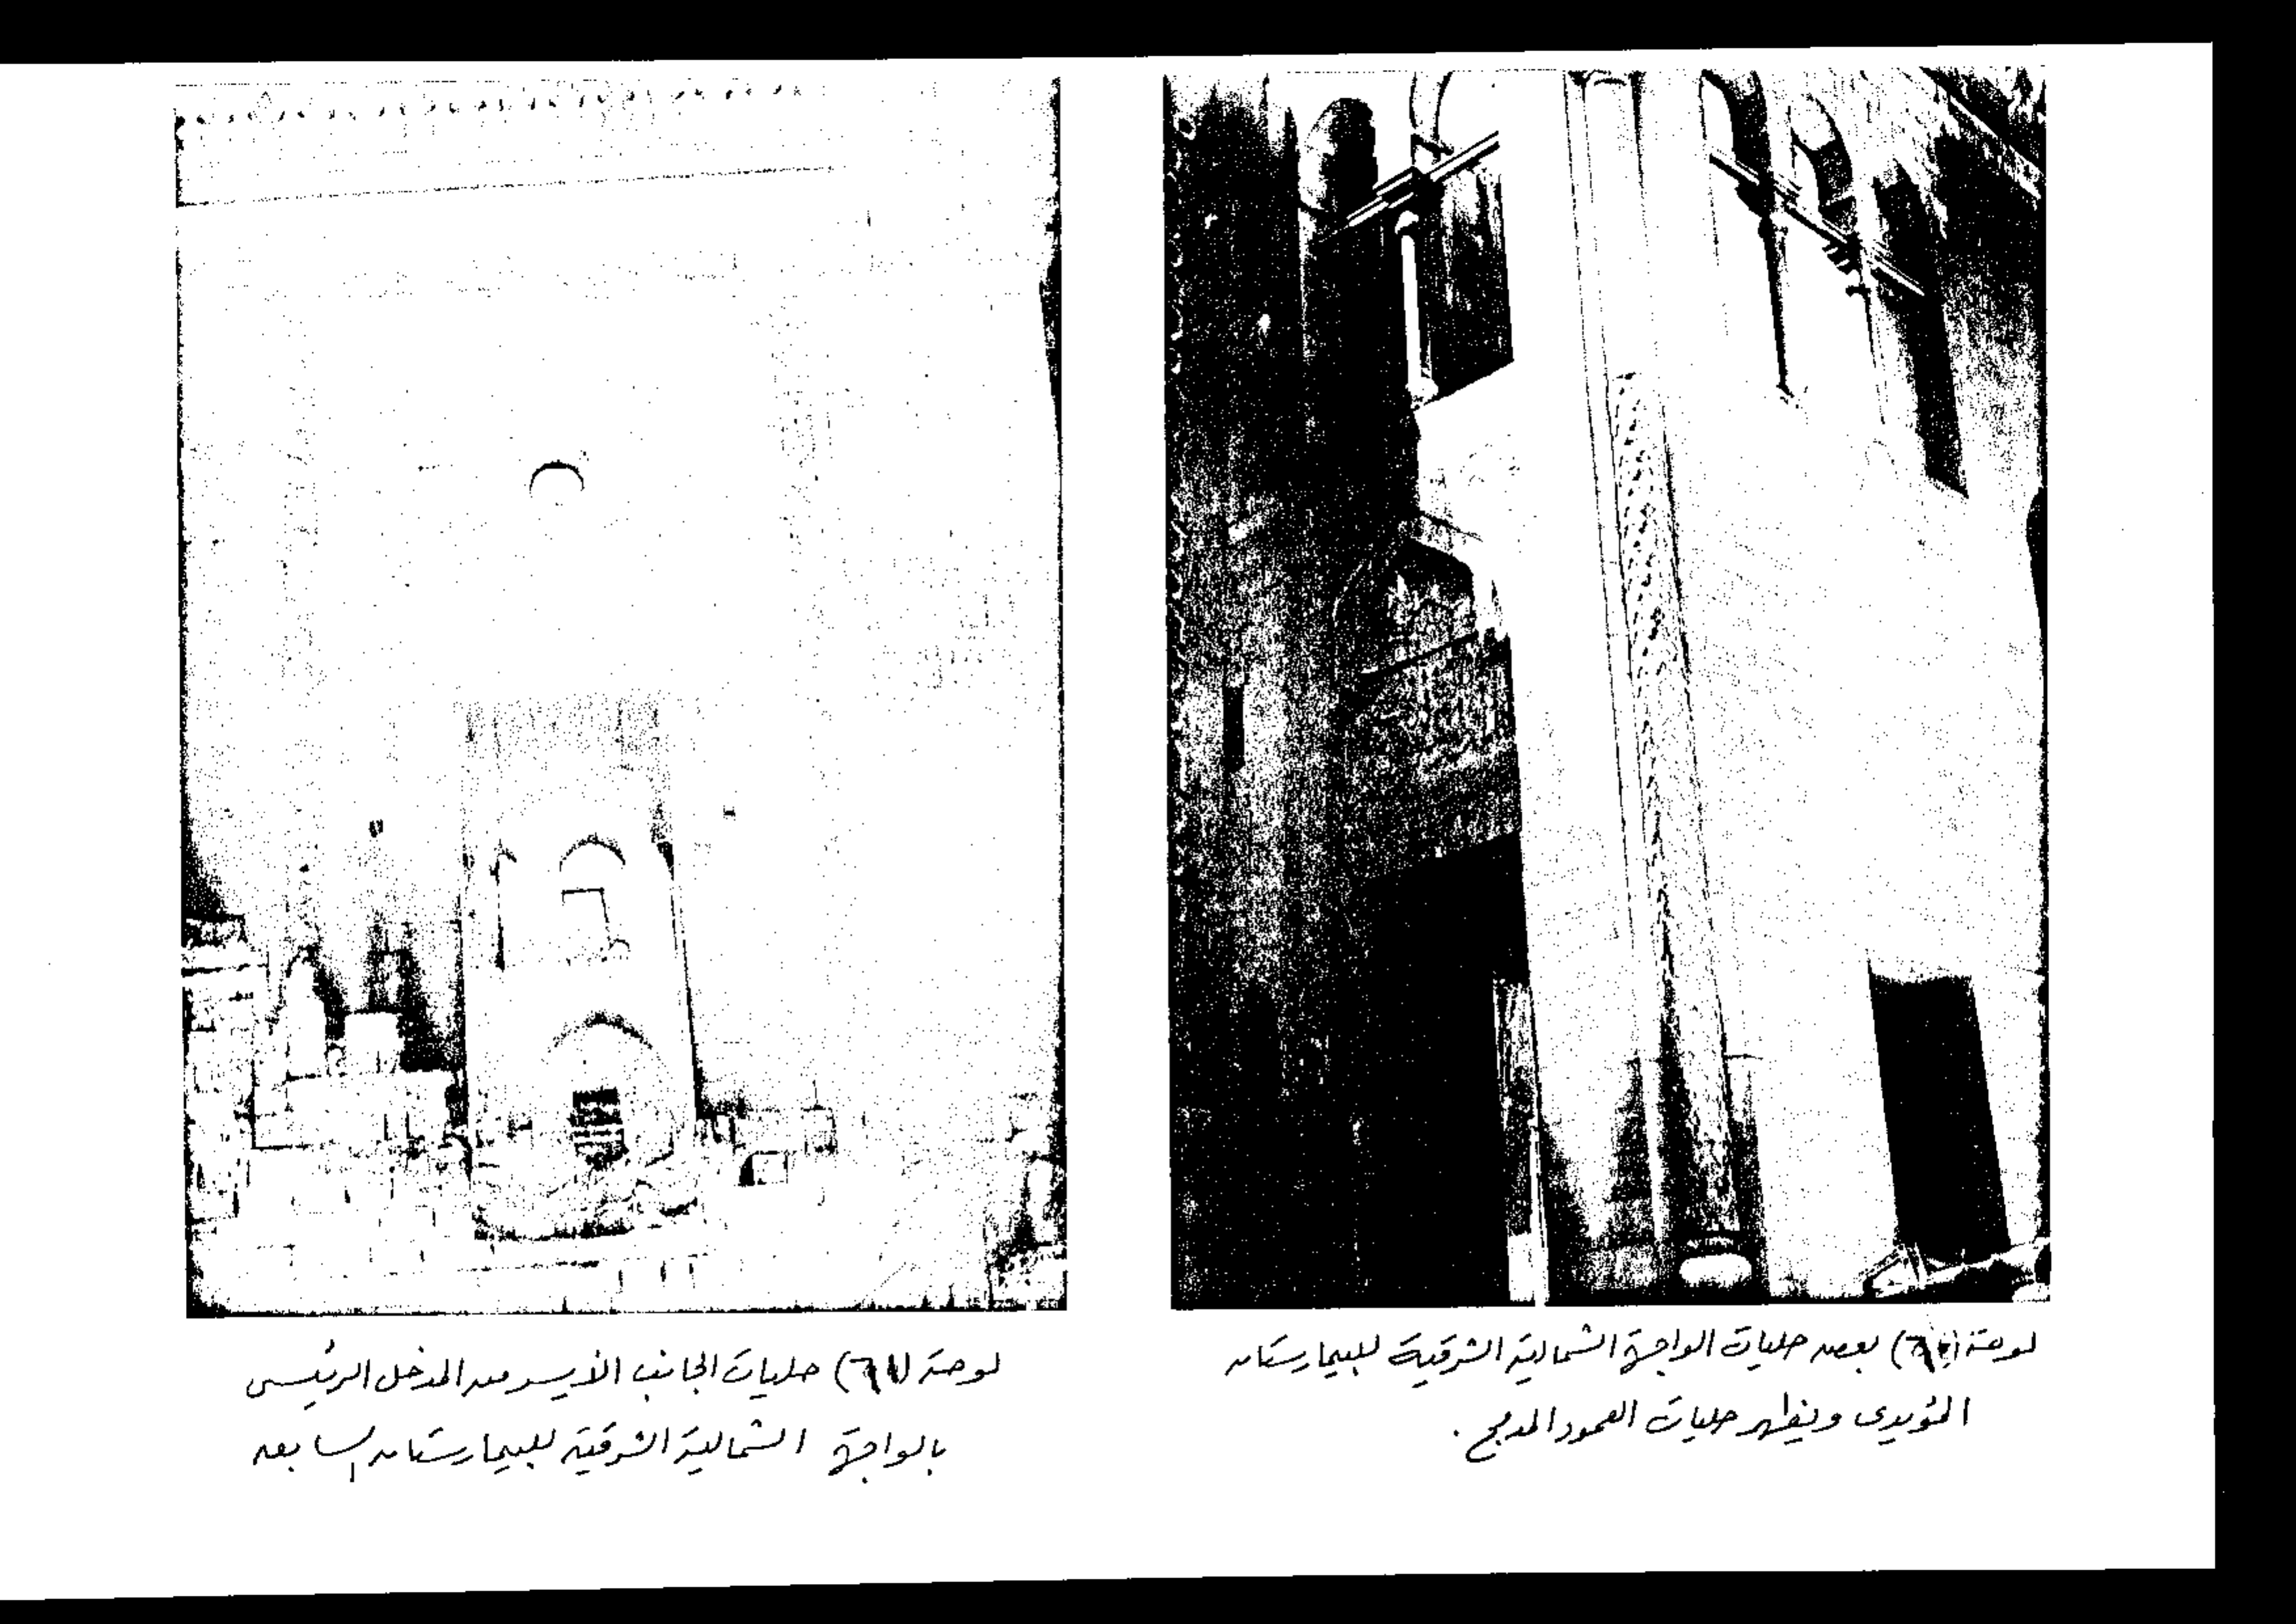 لوحة (٦٠) بعض حليات الواجهة الشمالية الشرقية للبيمارستان
المؤيدى ويظهر حليات العمود المدمج .
لوحة (٦١) حليات الجانب الأيسر من المدخل الرئيسى
بالواجهة الشمالية الشرقية للبيمارستان السابق